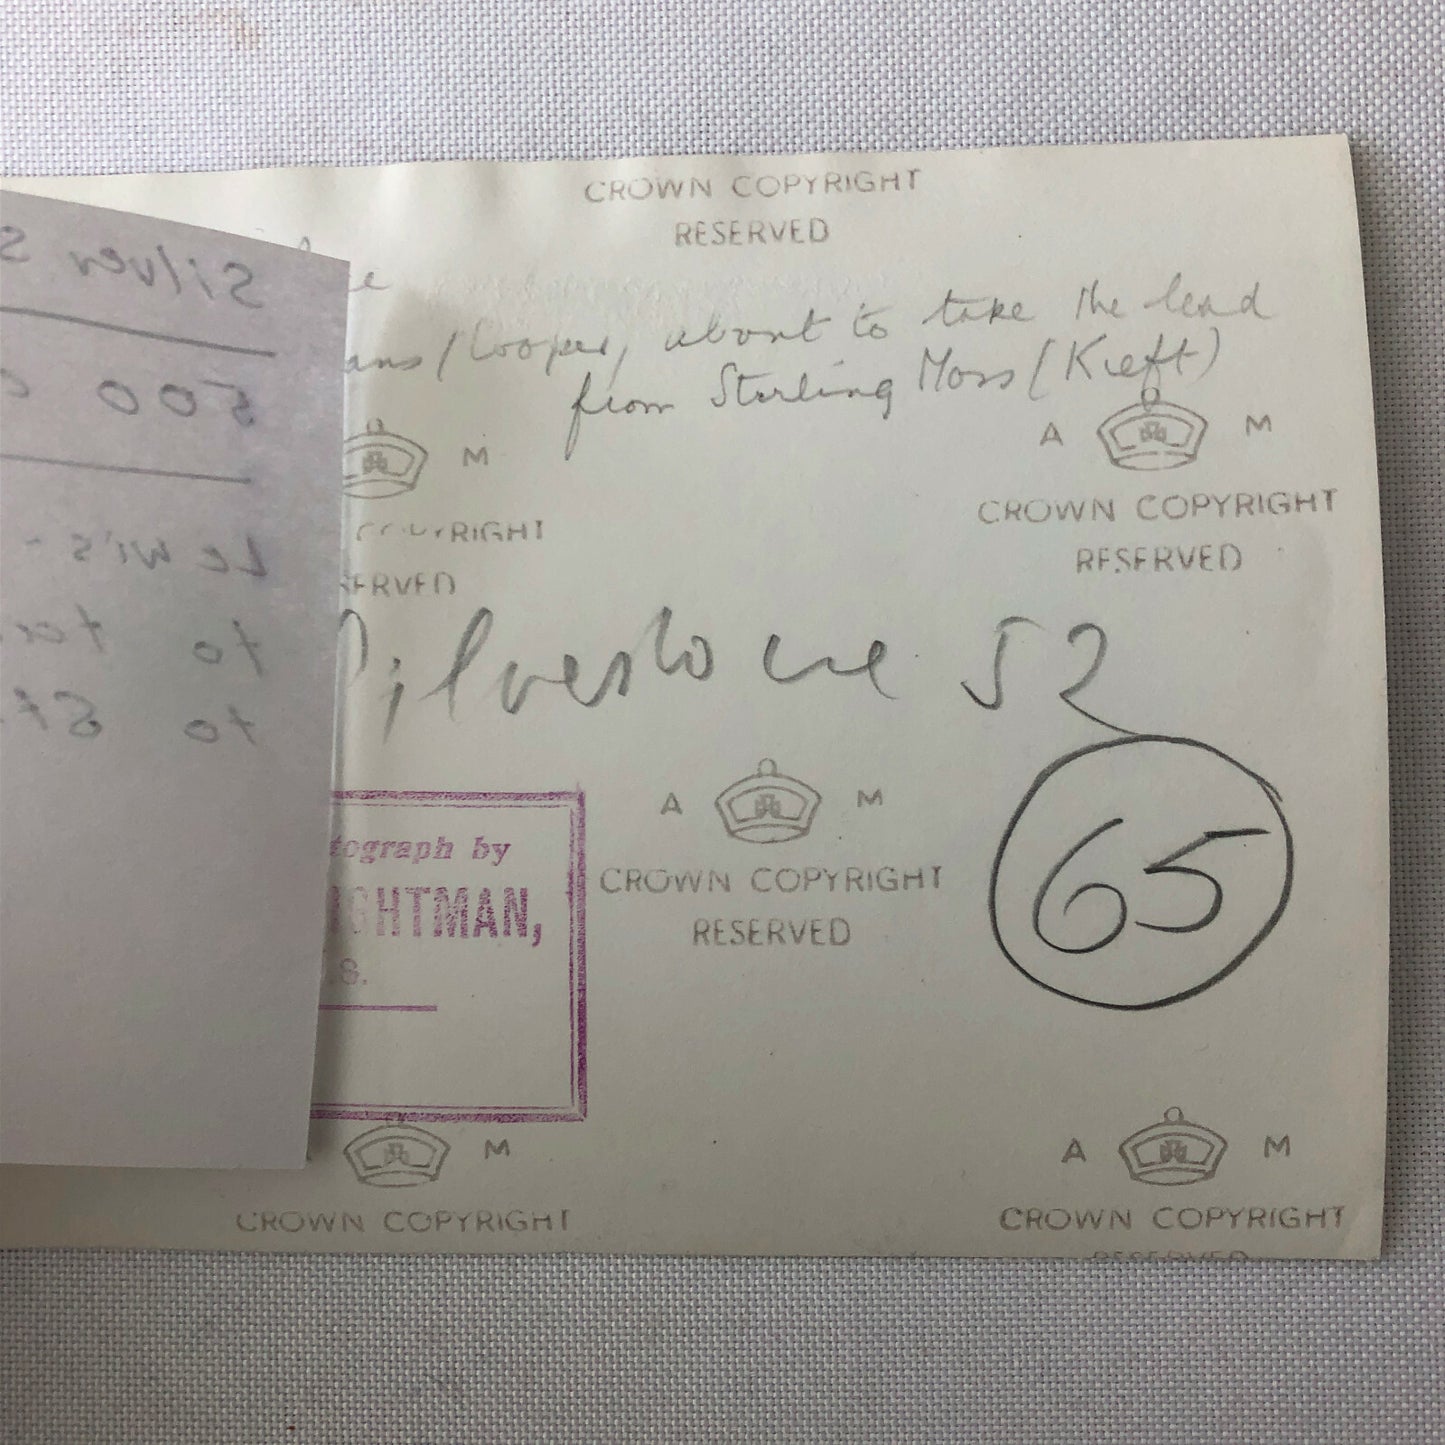 CROWN COPYRIGHT
RESERVED
ans/Cooper, about to take the lead
from Sterling Moss (Kieft)
M
A M
COPYRIGHT
CROWN COPYRIGHT
SERVED
RESERVED
Silverstone 52
65
A M
CROWN COPYRIGHT
RESERVED
tograph by
IGHTMAN,
.S.
M
CROWN COPYRIGHT
A M
CROWN COPYRIGHT
RESERVED
Silver S
500 c
Lewis-
to
to St